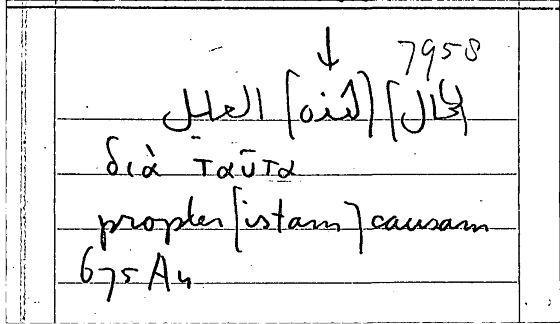 7958
↓
[لحال] [هذه] العلل
διὰ ταῦτα
propter [istam] causam
675 A4